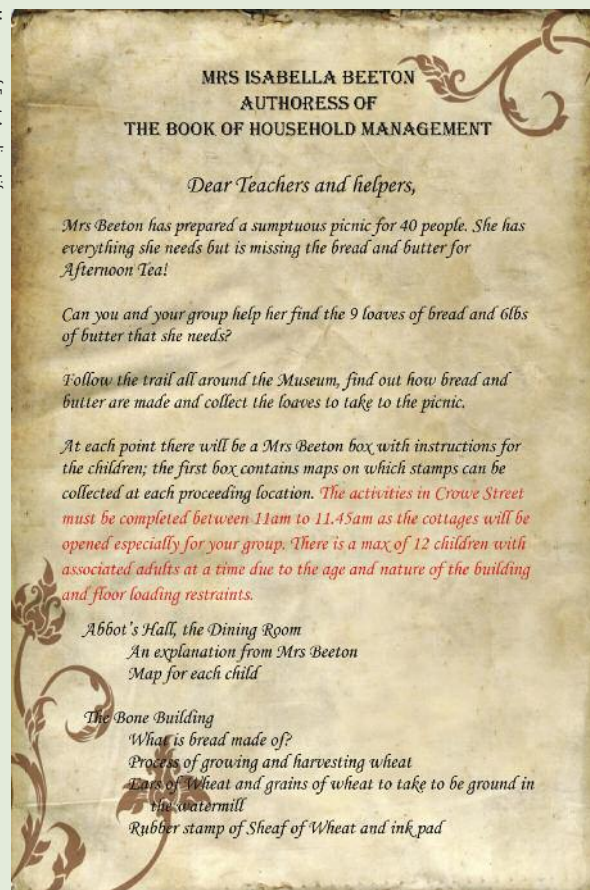 MRS ISABELLA BEETON
AUTHORESS OF
THE BOOK OF HOUSEHOLD MANAGEMENT
Dear Teachers and helpers,
Mrs Beeton has prepared a sumptuous picnic for 40 people. She has
everything she needs but is missing the bread and butter for
Afternoon Tea!
Can you and your group help her find the 9 loaves of bread and 6lbs
of butter that she needs?
Follow the trail all around the Museum, find out how bread and
butter are made and collect the loaves to take to the picnic.
At each point there will be a Mrs Beeton box with instructions for
the children; the first box contains maps on which stamps can be
collected at each proceeding location. The activities in Crowe Street
must be completed between 11am to 11.45am as the cottages will be
opened especially for your group. There is a max of 12 children with
associated adults at a time due to the age and nature of the building
and floor loading restraints.
Abbot's Hall, the Dining Room
An explanation from Mrs Beeton
Map for each child
The Bone Building
What is bread made of?
Process of growing and harvesting wheat
Ears of Wheat and grains of wheat to take to be ground in
the watermill
Rubber stamp of Sheaf of Wheat and ink pad